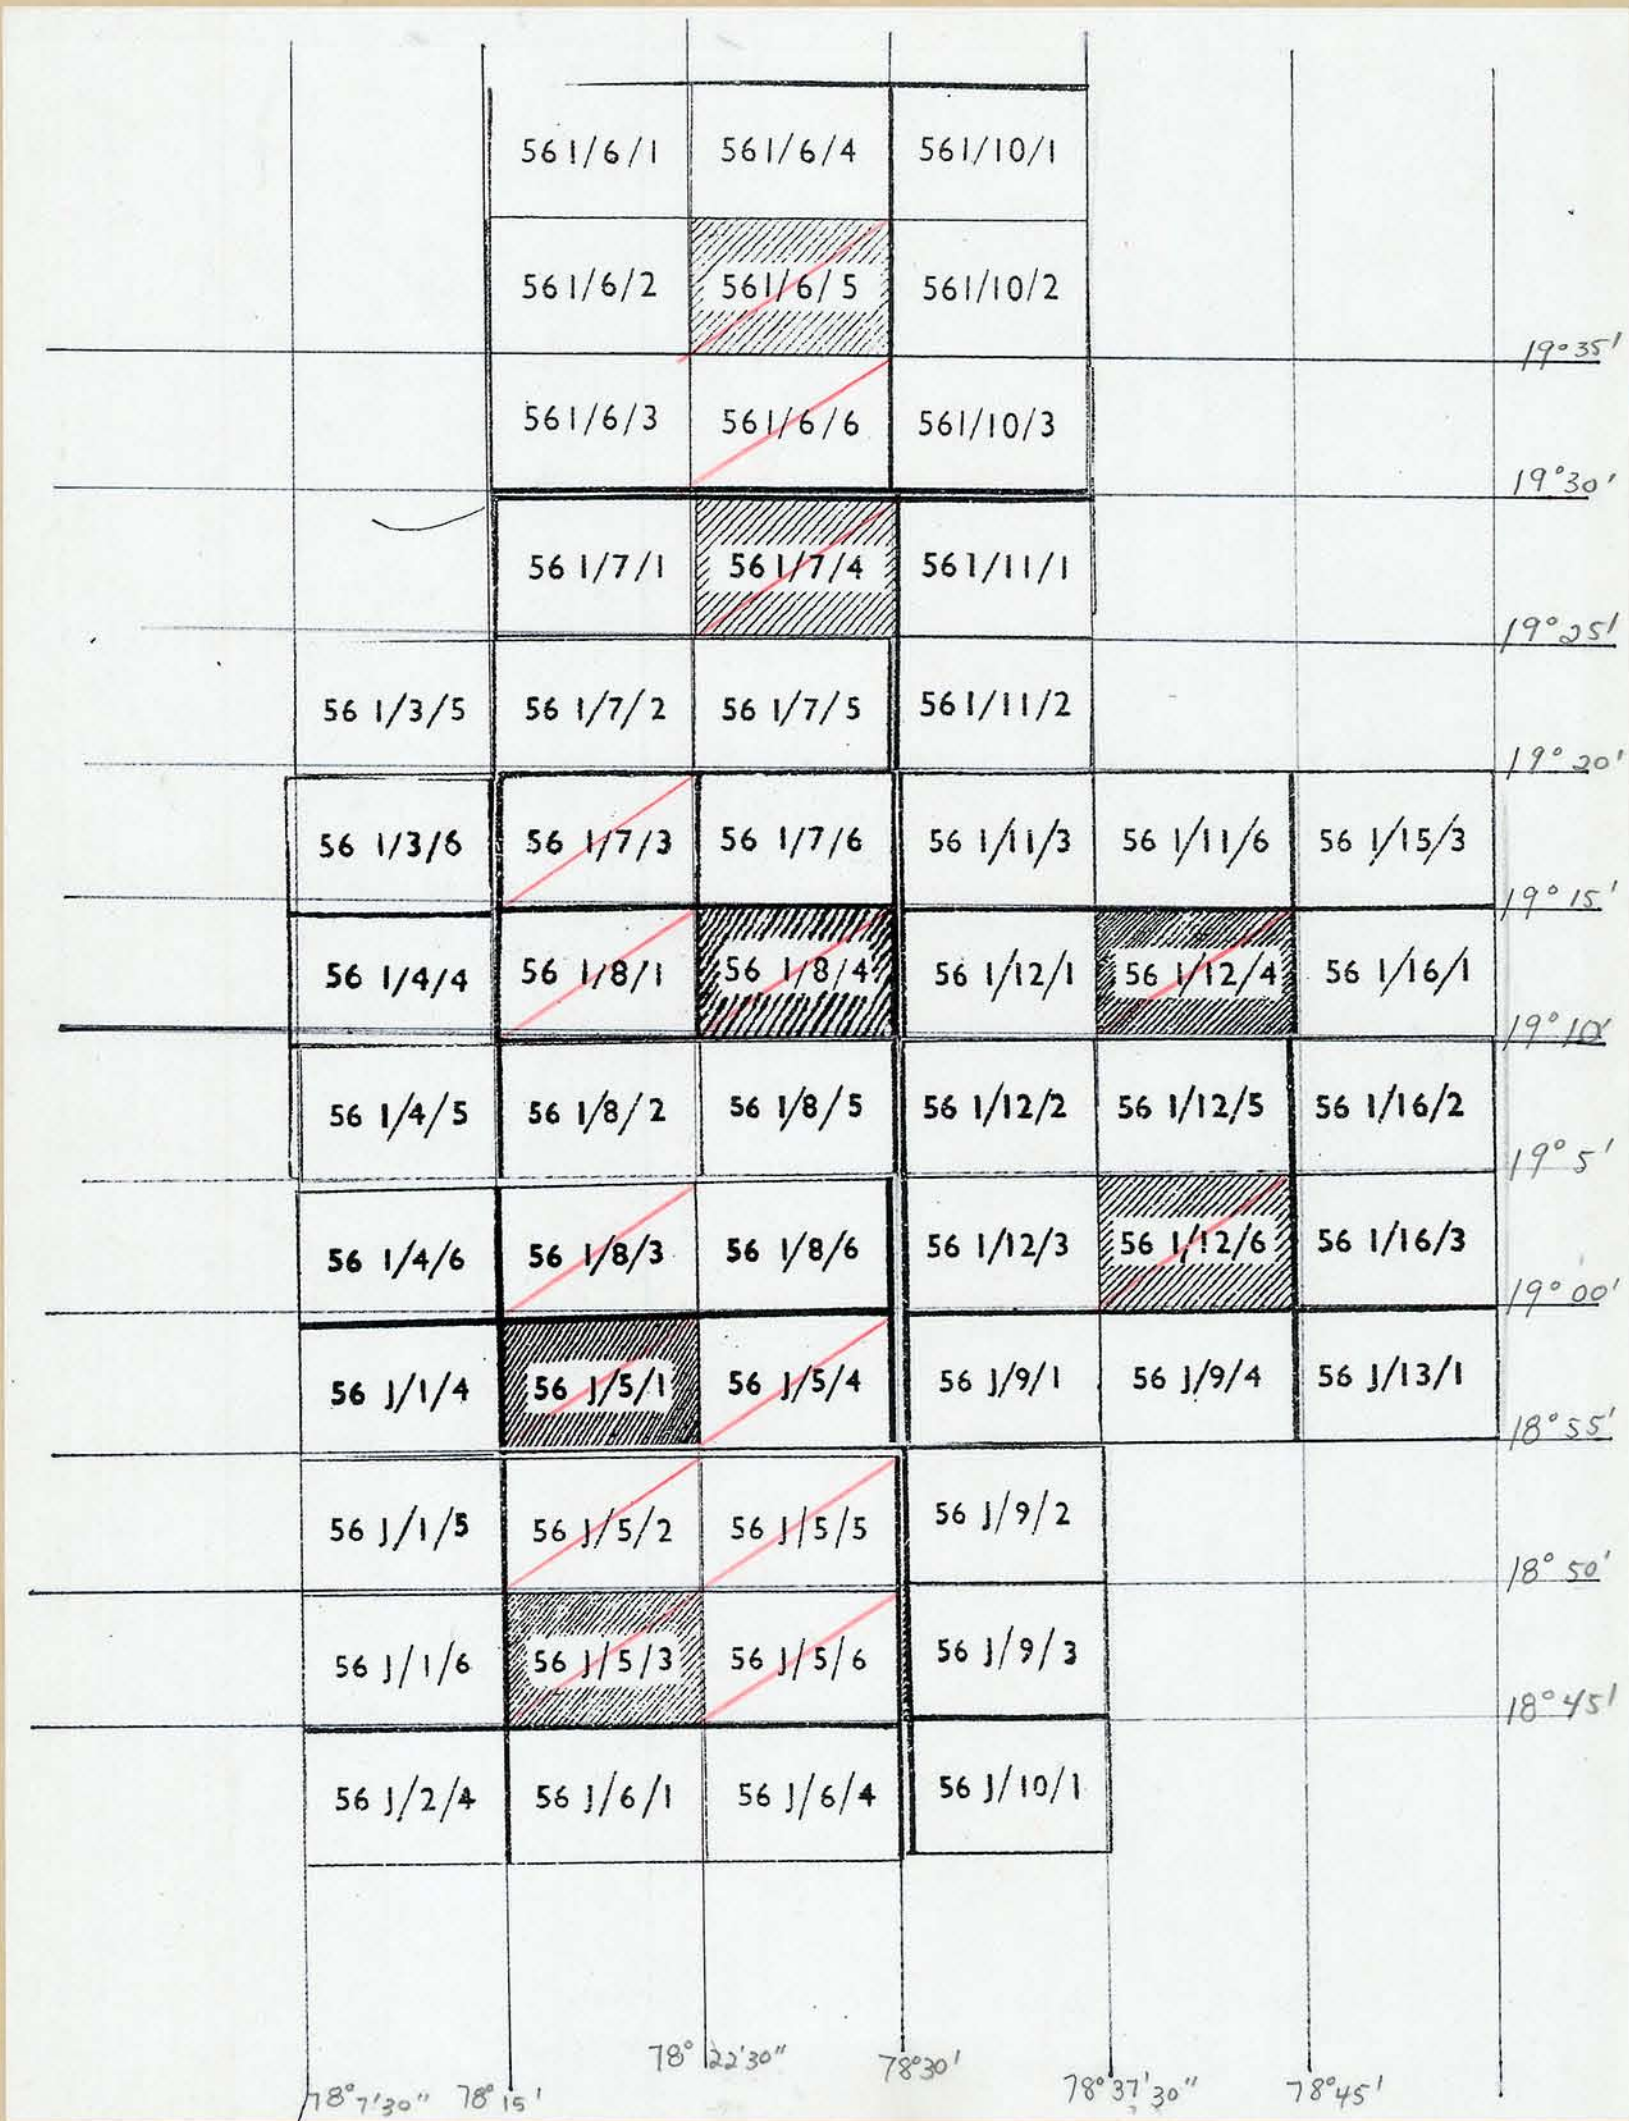 561/6/1 561/6/4 561/10/1
561/6/2 561/6/5 561/10/2
19°35'
561/6/3 561/6/6 561/10/3
19°30'
56 1/7/1 56 1/7/4 561/11/1
19°25'
56 1/3/5 56 1/7/2 56 1/7/5 561/11/2
19°20'
56 1/3/6 56 1/7/3 56 1/7/6 56 1/11/3 56 1/11/6 56 1/15/3
19°15'
56 1/4/4 56 1/8/1 56 1/8/4 56 1/12/1 56 1/12/4 56 1/16/1
19°10'
56 1/4/5 56 1/8/2 56 1/8/5 56 1/12/2 56 1/12/5 56 1/16/2
19°5'
56 1/4/6 56 1/8/3 56 1/8/6 56 1/12/3 56 1/12/6 56 1/16/3
19°00'
56 J/1/4 56 J/5/1 56 J/5/4 56 J/9/1 56 J/9/4 56 J/13/1
18°55'
56 J/1/5 56 J/5/2 56 J/5/5 56 J/9/2
18°50'
56 J/1/6 56 J/5/3 56 J/5/6 56 J/9/3
18°45'
56 J/2/4 56 J/6/1 56 J/6/4 56 J/10/1
78°7'30" 78°15' 78°22'30" 78°30' 78°37'30" 78°45'